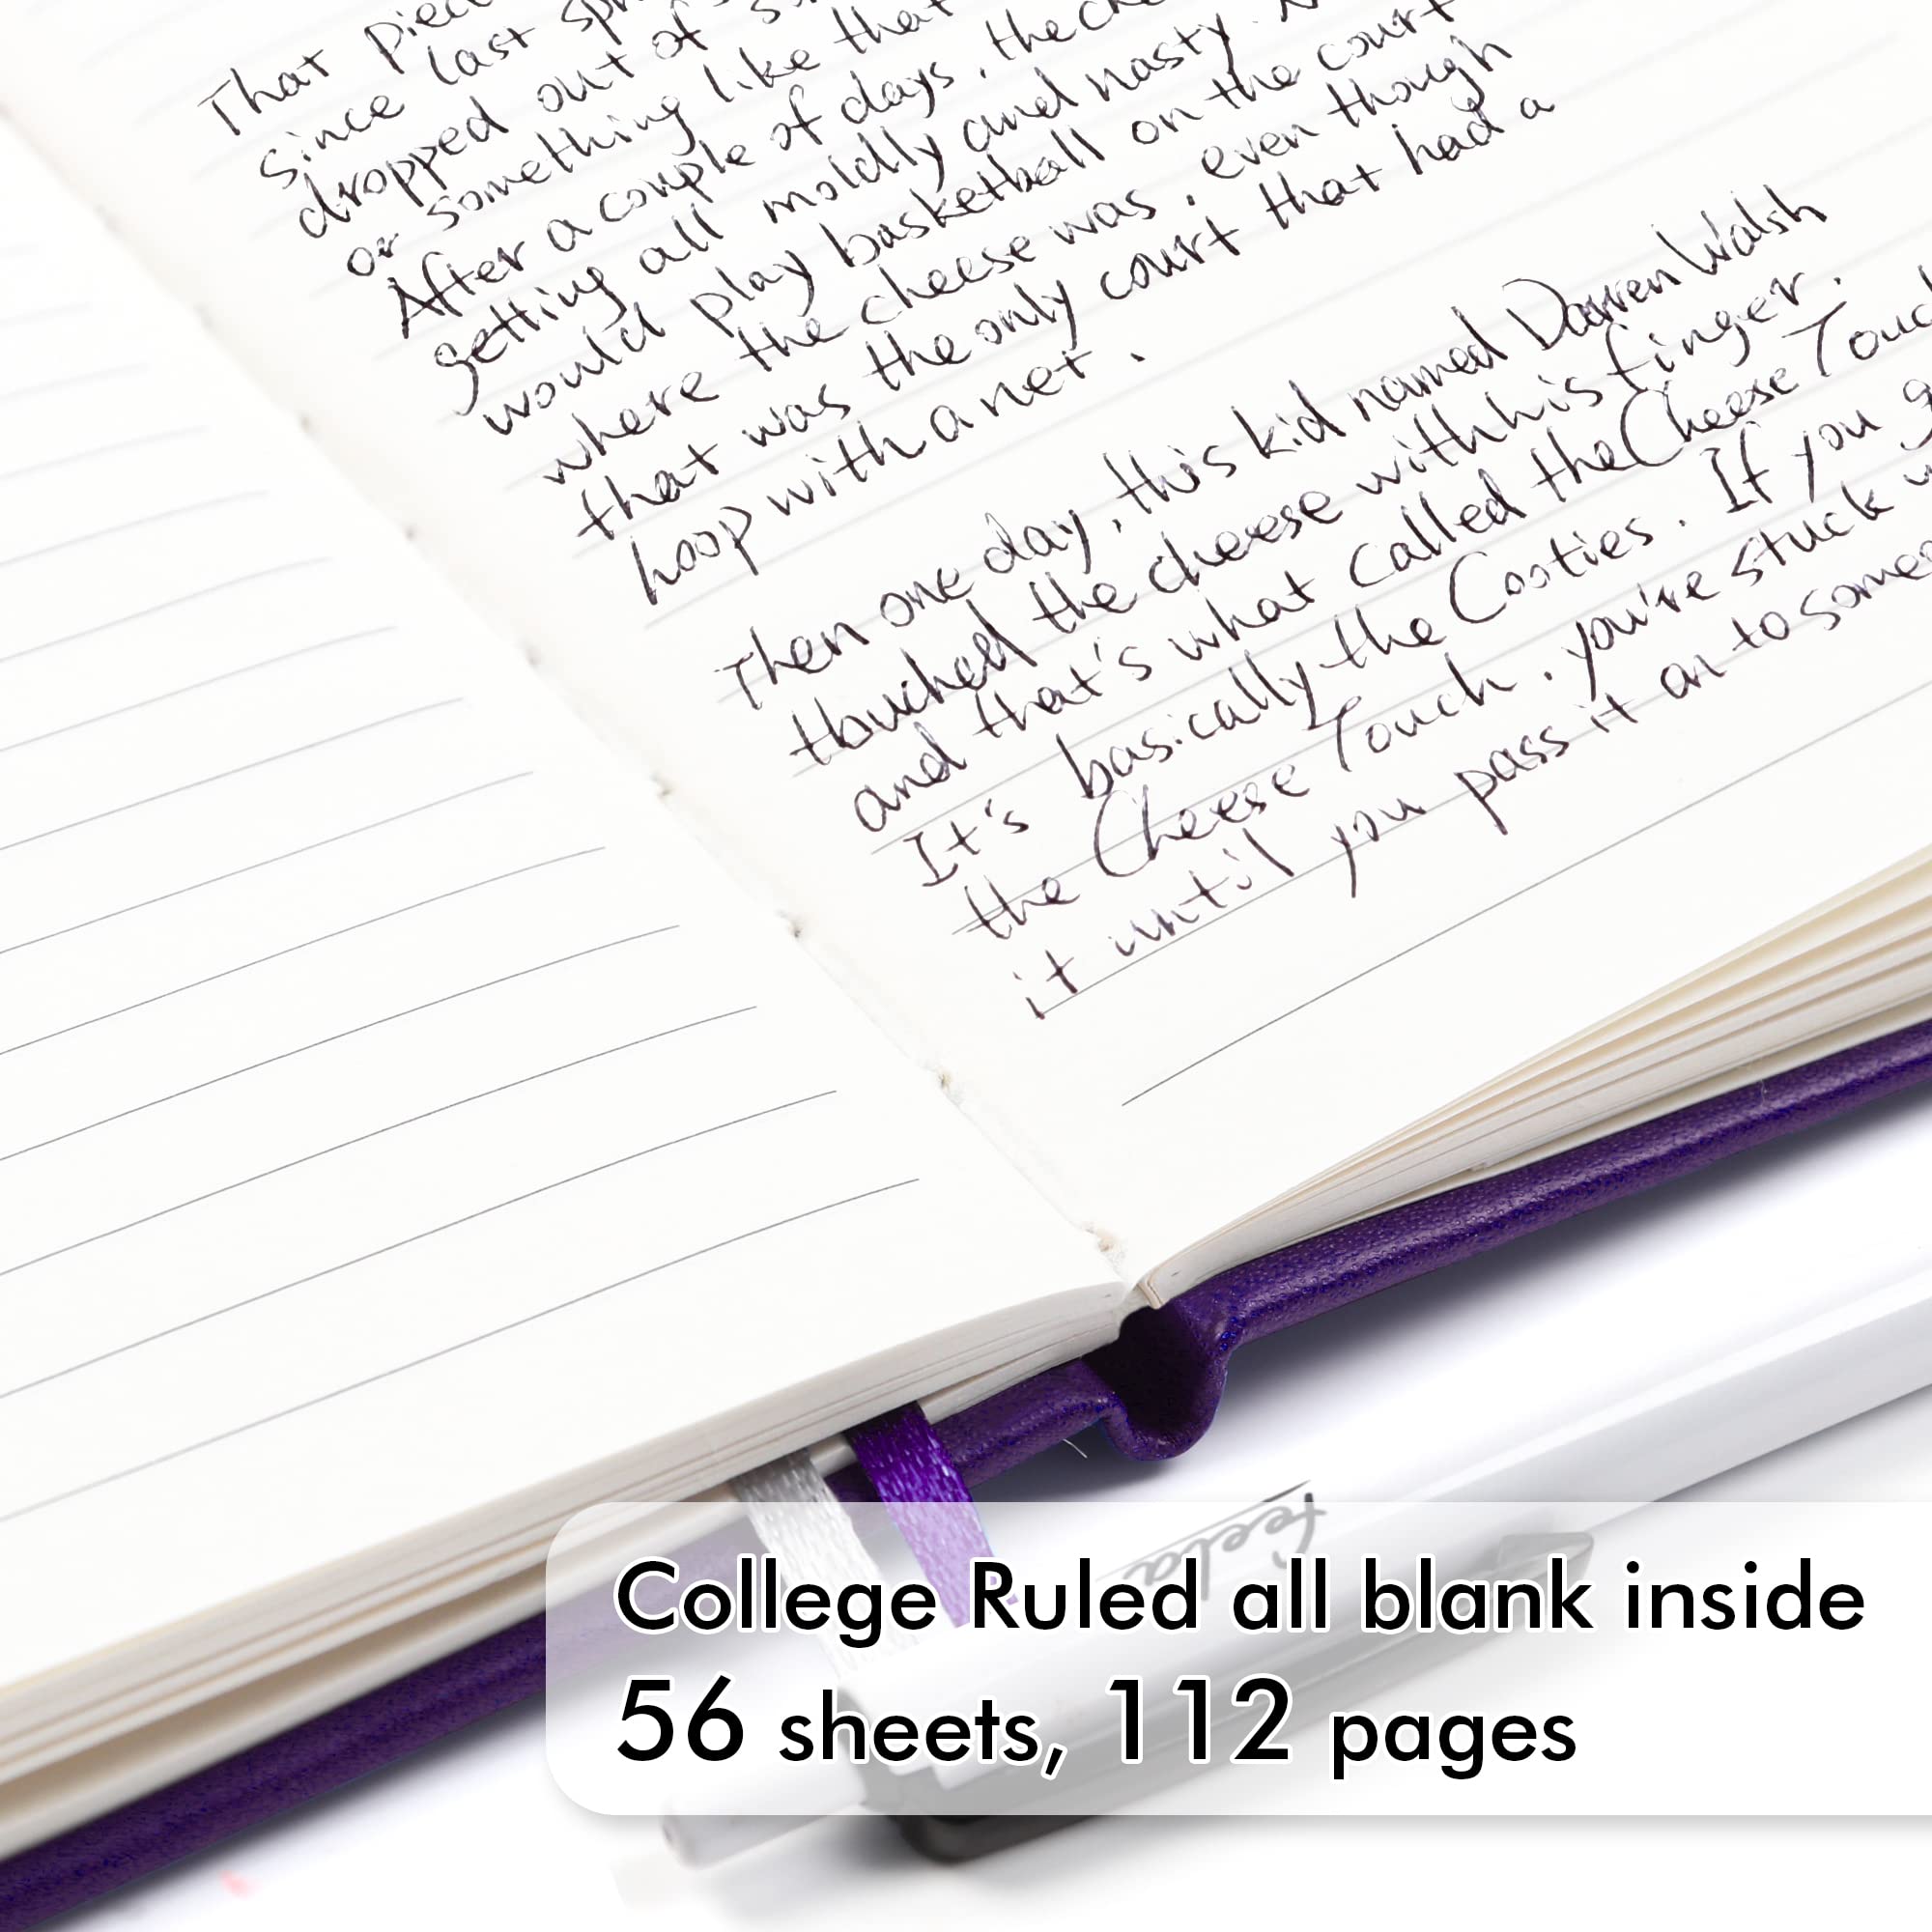 That piec
since last spr
dropped out of s
or something like that
After a couple of days, the che
getting all moldly and nasty. N
would play basketball on the court
where the cheese was, even though
that was the only court that had a
hoop with a net.
Then one day, this kid named Darren Walsh
thouched the cheese with his finger.
and that's what called the Cheese Touc
It's basically the Cooties. If you g
the Cheese Touch, you're stuck w
it until you pass it on to some
feela
College Ruled all blank inside
56 sheets, 112 pages